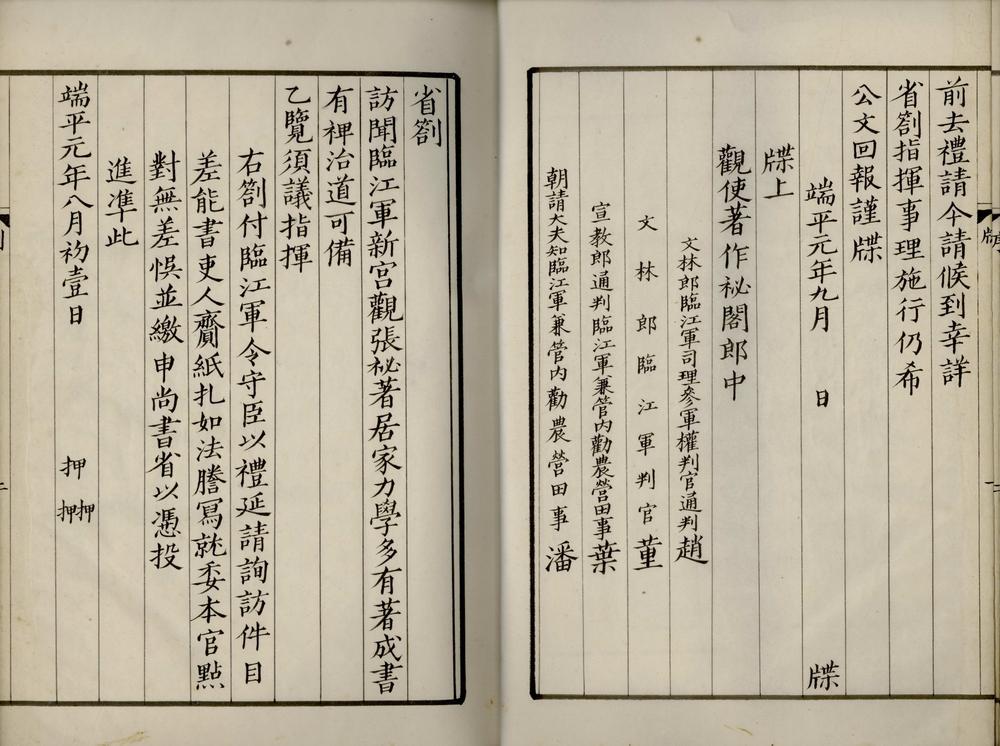 前去禮請今請候到幸詳
省劄指揮事理施行仍希
公文回報謹牒
端平元年九月　日　牒
牒上
觀使著作祕閣郎中
文林郎臨江軍司理參軍權判官通判趙
文林郎臨江軍判官董
宣教郎通判臨江軍兼管內勸農營田事葉
朝請大夫知臨江軍兼管內勸農營田事潘
省劄
訪聞臨江軍新宮觀張祕著居家力學多有著成書
有裨治道可備
乙覽須議指揮
右劄付臨江軍令守臣以禮延請詢訪件目
差能書吏人齎紙札如法謄寫就委本官點
對無差悞並繳申尚書省以憑投
進準此
端平元年八月初壹日　押　押押